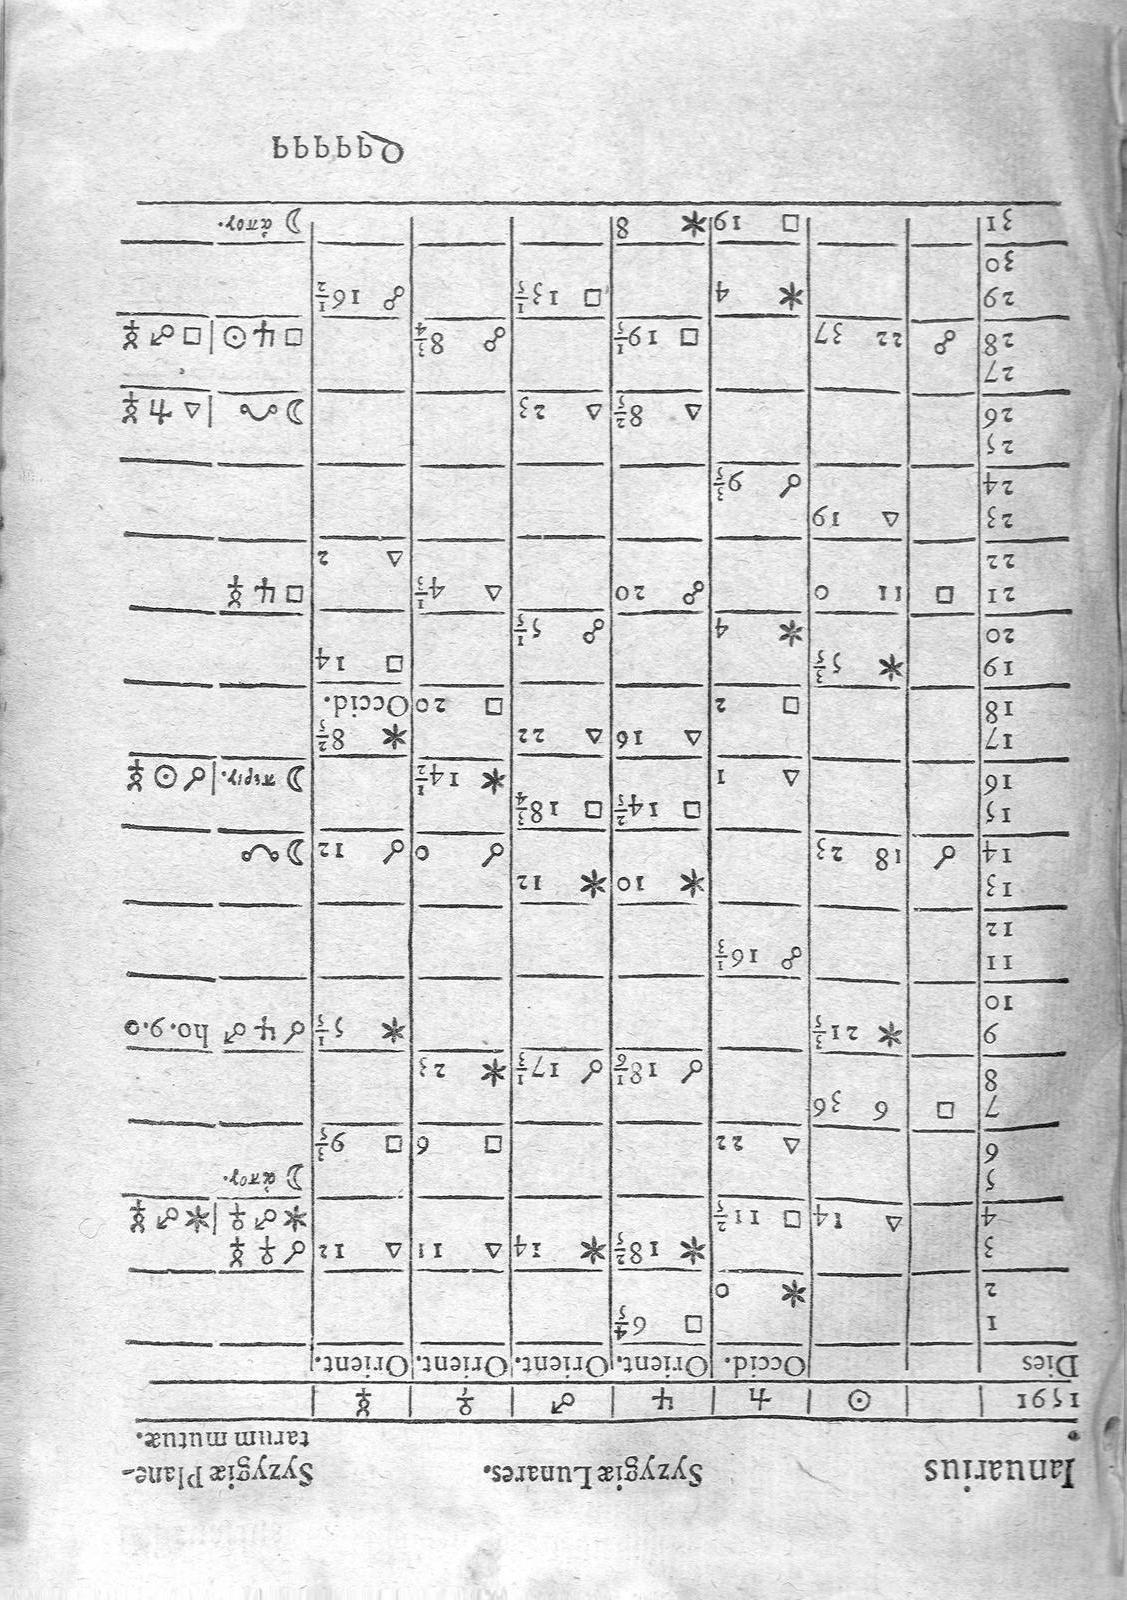 Ianuarius Syzygiæ Lunares. Syzygiæ Plane-
tarum mutuæ.
1591 ☉ ♄ ♃ ♂ ♀ ☿
Dies Occid. Orient. Orient. Orient. Orient.
1 □ 6 4/5
2 ✱ 0
3 ✱ 18 2/5 ✱ 14 △ 11 △ 12 ☌ ♀ ☿
4 △ 14 □ 11 2/5 ✱ ♂ ♀ | ✱ ♂ ☿
5 ☽ ἀπογ.
6 △ 22 □ 6 □ 9 3/5
7 □ 6 36
8 ☌ 18 1/6 ☌ 17 1/3 ✱ 23
9 ✱ 21 3/5 ✱ 5 1/5 ☌ ♃ ♂ ho. 9.0
10
11 ☍ 16 1/3
12
13 ✱ 10 ✱ 12
14 ☌ 18 23 ☌ 0 ☌ 12 ☽ ☊
15 □ 14 2/5 □ 18 3/4
16 △ 1 ✱ 14 1/2 ☽ περιγ. | ☌ ☉ ☿
17 △ 16 △ 22 ✱ 8 2/5
18 □ 2 □ 20 Occid.
19 ✱ 5 3/5 □ 14
20 ✱ 4 ☍ 5 1/5
21 □ 11 0 ☍ 20 △ 4 1/3 □ ♃ ☿
22 △ 2
23 △ 19
24 ☌ 9 3/5
25
26 △ 8 2/5 △ 23 ☽ ☋ | △ ♄ ☿
27
28 ☍ 22 37 □ 19 1/5 ☍ 8 3/4 □ ♃ ☉ | □ ♂ ☿
29 ✱ 4 □ 13 1/5 ☍ 16 1/2
30
31 □ 19 ✱ 8 ☽ ἀπογ.
Qqqqqq